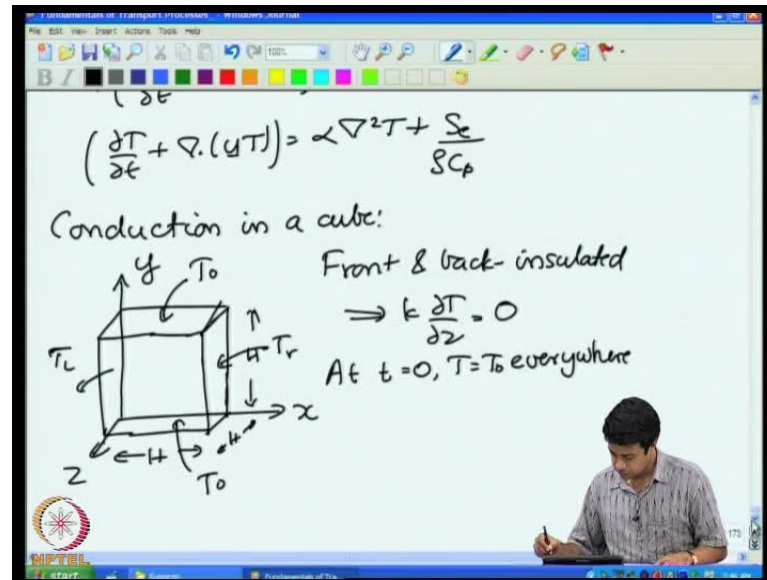 Fundamentals of Transport Processes_ - Windows Journal
File Edit View Insert Actions Tools Help
100%
B I
∂t
(∂T/∂t + ∇.(uT)) = α∇²T + Se/ρCp
Conduction in a cube:
y
T0
Front & back- insulated
⇒ k ∂T/∂z = 0
TL
H
Tr
At t=0, T=T0 everywhere
x
H
H
z
T0
173
NPTEL
start
Fundamentals of Tra...